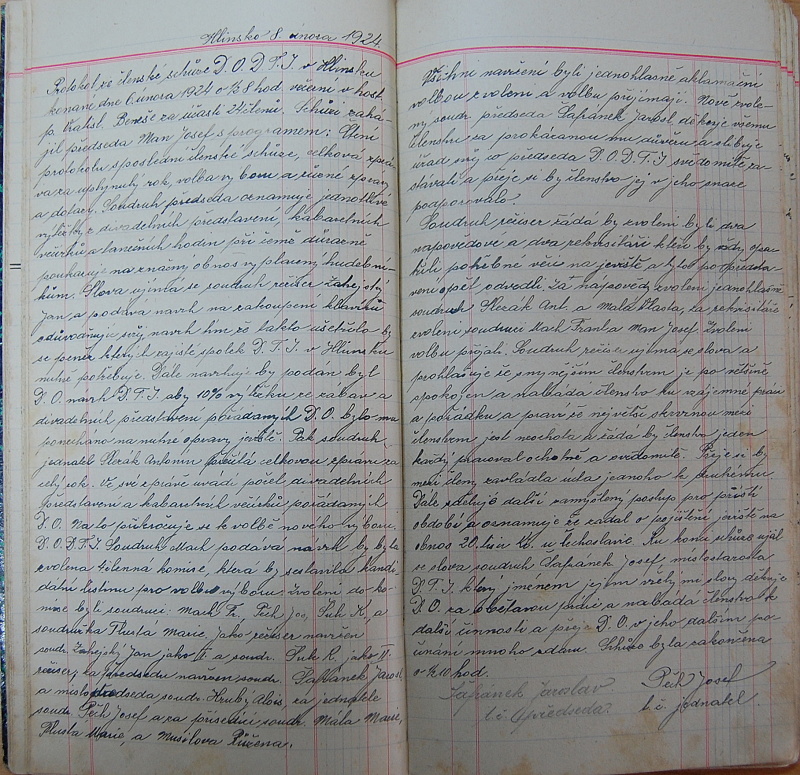 Hlinsko 8 února 1924.
Protokol ze členské schůze D.O.D.T.J. v Hlinsku
konané dne 6 února 1924 o ½8 hod. večerní v host.
p. Vratisl. Beneše za účasti 24 členů. Schůzi zahá-
jil předseda Man Josef s programem: Čtení
protokolu s poslední členské schůze, celková zprá-
va za uplynulý rok, volba výboru a různé zprávy
a dotazy. Soudruh předseda oznamuje jednotlivé
výtěžky z divadelních představení, kabaretních
večírků a tanečních hodin při čemž důrazně
poukazuje na značný obnos vyplacený hudební-
kům. Slova ujímá se soudruh režiser Zahejský
Jan a podává návrh na zakoupení klavíru
odůvodňuje svůj návrh tím že takto ušetřilo by
se peněz kterých zajisté spolek D.T.J. v Hlinsku
nutně potřebuje. Dále navrhuje by podán byl
D.O. návrh D.T.J. aby 10% výtěžku ze zábav a
divadelních představení pořádaných D.O. bylo mu
ponecháno na nutné opravy jeviště. Pak soudruh
jednatel Slezák Antonín přečítá celkovou zprávu za
celý rok. Ve své zprávě uvádí počet divadelních
představení a kabaretních večírků pořádaných
D.O. Na to přikročuje se k volbě nového výboru
D.O.D.T.J. Soudruh Mach podává návrh by byla
zvolena volební komise, která by sestavila kandi-
dátní listinu pro volbu výboru. Zvoleni do ko-
mise byli soudruzi. Mach Fr., Pěch Jos, Suk K, a
soudružka Plustá Marie, Jako režiser navržen
soudr. Zahejský Jan jako I a soudr. Suk K, jako II.
režiser, za předsedu navržen soudr. Šafránek Jarosl.
a místopředseda soudr. Hrubý Alois, za jednatele
soudr. Pěch Josef a za přísedící soudr. Malá Marie,
Plustá Marie, a Musilova Růžena.
Všichni navržení byli jednohlasně aklamační
volbou zvoleni a volbu přijímají. Nově zvole-
ný soudr. předseda Šafránek Jarosl. děkuje všemu
členstvu za prokázanou mu důvěru a slibuje
úřad svůj co předseda D.O.D.T.J. svědomitě za-
stávati a přeje si by členstvo jej v jeho snaze
podporovalo.
Soudruh režiser žádá by zvoleni byli dva
napovědové a dva rekvisitáři kteří by vždy opa-
třili potřebné věci na jeviště a tyto po představ-
ení opět odvedli. Za napovědy zvoleni jednohlasně
soudruh Slezák Ant. a Malá Vlasta, za rekvisitáře
zvoleni soudruzi Mach Frant a Man Josef. Zvolení
volbu přijali. Soudruh režiser ujímá se slova a
prohlašuje že s nynějším členstvem je po většině
spokojen a nabádá členstvo ku vzájemné práci
a pořádku a praví že největší skvrnou mezi
členstvem jest neochota a žádá by členstvo jeden
každý pracoval ochotně a svědomitě. Přeje si by
mezi členy zavládla úcta jednoho k druhému.
Dále sděluje další zamýšlený postup pro příští
období a oznamuje že žádal o pojištění jeviště na
obnos 20 tisíc Kč. u Čechoslavie. Ku konci schůze ujal
se slova soudruh Šafránek Josef, místostarosta
D.T.J. který jménem jejím vřelými slovy děkuje
D.O. za obětavou práci a nabádá členstvo k
další činnosti a přeje D.O. v jeho dalším po-
čínání mnoho zdaru. Schůze byla zakončena
o ½10 hod.
Šafránek Jaroslav
t.č. předseda.
Pěch Josef
t.č. jednatel.